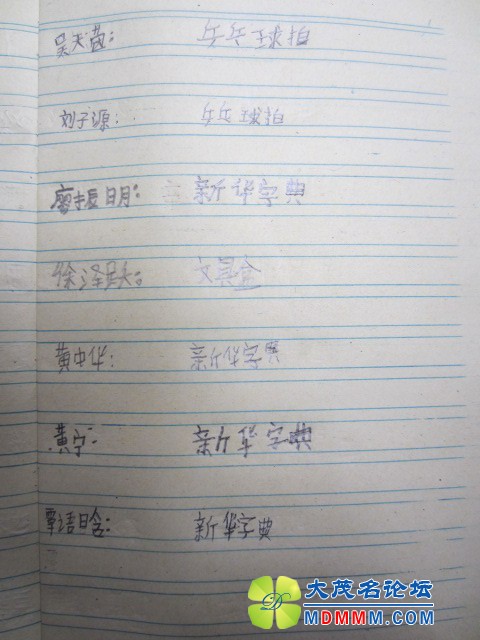 吴天茵: 乒乓球拍
刘子源: 乒乓球拍
廖振明: 新华字典
徐泽 : 文具盒
黄中华: 新华字典
黄宁- 新华字典
语晗: 新华字典
大茂名论坛
MDMMM.COM